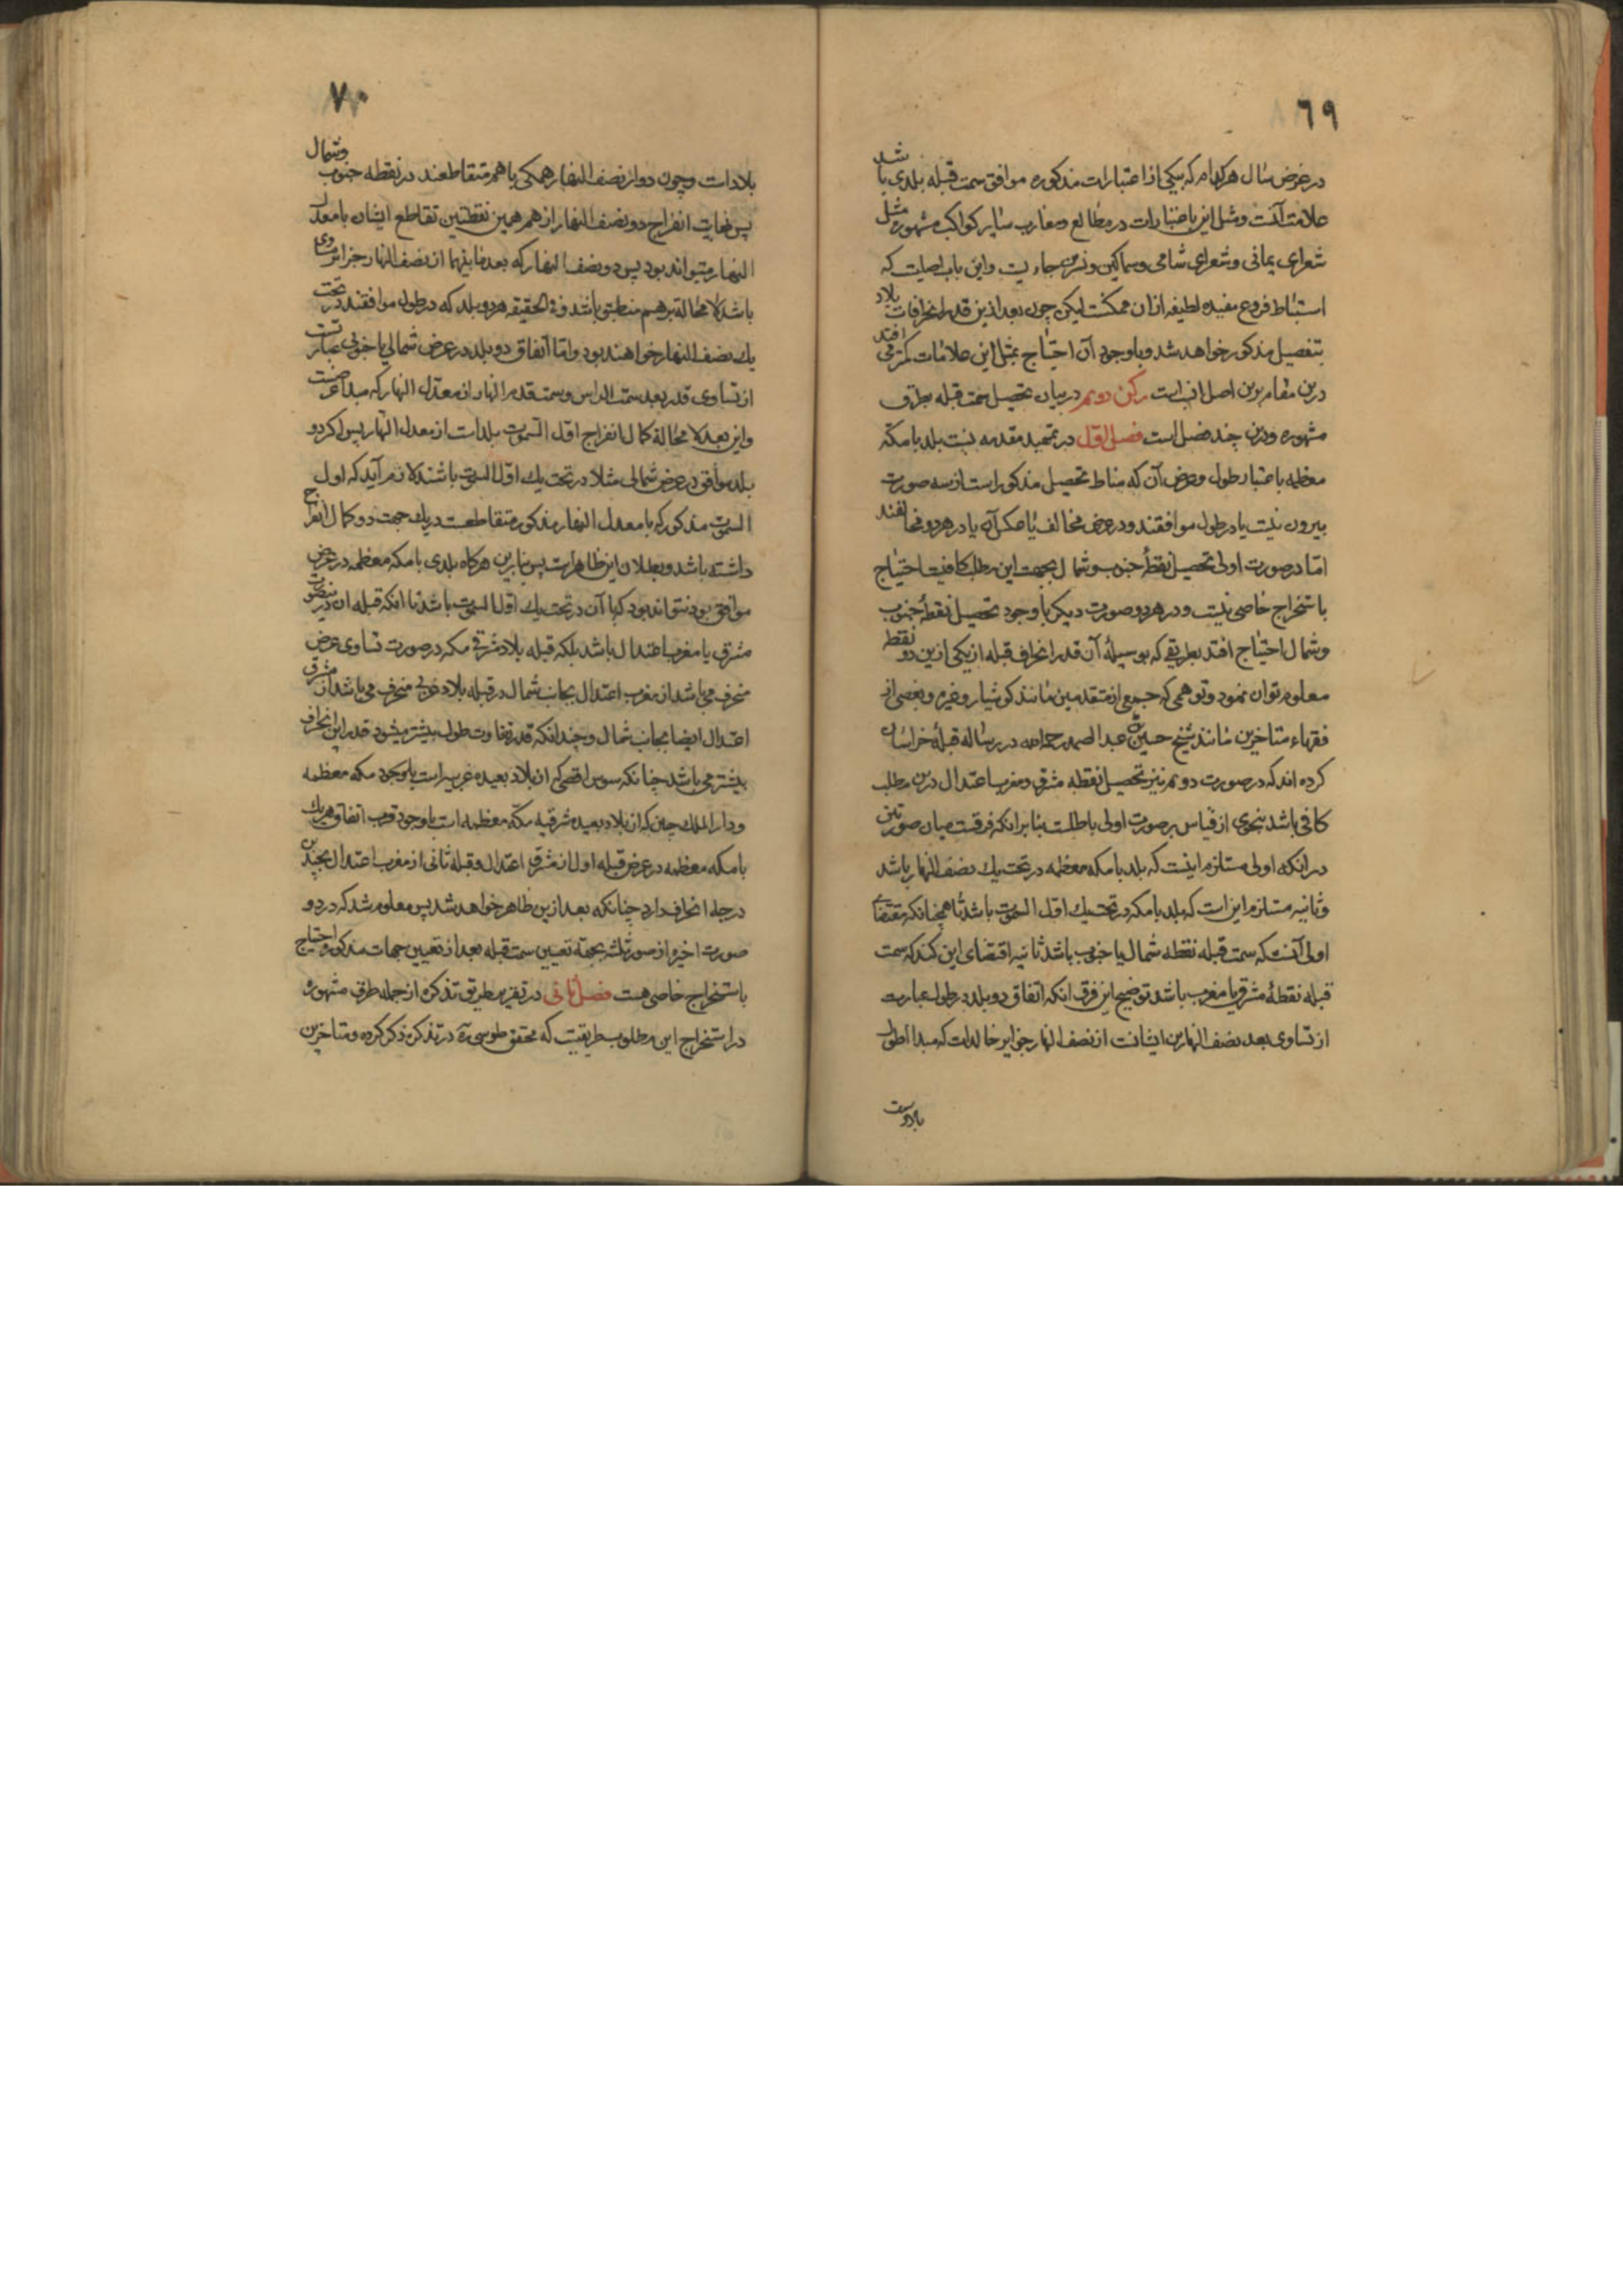 ٦٩
در عرض سال هر کدام که بیکی از اعتبارات مذکوره موافق سمت قبله بلدی باشد
علامت آنست و مثل این اعتبارات در مطالع و مغارب سایر کواکب مشهوره مثل
شعرای یمانی و شعرای شامی و سماکین و نسرین جاریست و این باب اصلیست که
استنباط فروع مفیده لطیفه ازان ممکنست لیکن چون بعد ازین قدر انحرافات بلاد
بتفصیل مذکور خواهد شد و با وجود آن احتیاج بمثل این علامات کمتر می افتد
درین مقام برین اصل است رکن دویم در بیان تحصیل سمت قبله بطرق
مشهوره و درین چند فصل است فصل اول در تمهید مقدمه نسبت بلد با مکه
معظمه باعتبار طول و عرض آن که مناط تحصیل مذکور است از سه صورت
بیرون نیست یا در طول موافقند و در عرض مخالف یا عکس آن یا در هر دو مخالفند
امّا در صورت اولی تحصیل نقطهٔ جنوب و شمال بجهت این مطلب کافیست احتیاج
باستخراج خاصی نیست و در هر دو صورت دیکر با وجود تحصیل نقطهٔ جنوب
و شمال احتیاج افتد بطریقی که بوسیلهٔ آن قدر انحراف قبله از یکی ازین دو نقطه
معلوم توان نمود و توهمی که جمعی از متقدمین مانند کوشیار و غیره و بعضی از
فقهاء متاخرین مانند شیخ حسین بن عبد الصمد رحمه الله در رساله قبلهٔ خراسان
کرده اند که در صورت دویم نیز تحصیل نقطه مشرق و مغرب اعتدال درین مطلب
کافی باشد بنحوی از قیاس بر صورت اولی باطلست بنا بر انکه فرقست میان صورتین
در انکه اولی مستلزم اینست که بلد با مکه معظمه در تحت یك نصف النهار باشد
و ثانیه مستلزم این است که بلد با مکه در تحت یك اوّل السموت باشد تا همچنانکه مقتضای
اولی آنست که سمت قبله نقطه شمال یا جنوب باشد ثانیه اقتضای این کند که سمت
قبله نقطهٔ مشرق یا مغرب باشد توضیح این فرق انکه اتفاق دو بلد در طول عبارت
از تساوی بعد نصف النهارین ایشانست از نصف النهار جزایر خالدات که مبدا اطوال
بلادست
٧٠
بلادات و چون دوایر نصف النهار همکی با هم متقاطعند در نقطه جنوب و شمال
پس نهایت انفراج دو نصف النهار از هم همین نقطتین تقاطع ایشان با معدل
النهار میتواند بود پس دو نصف النهار که بعد مابینهما از نصف النهار جزایر مساوی
باشد لا محالة بر هم منطبق باشد و فی الحقیقه هر دو بلد که در طول موافقند در تحت
یك نصف النهار خواهند بود و امّا اتفاق دو بلد در عرض شمالی یا جنوبی عبارتست
از تساوی قدر بعد سمت الراس و سمت قدم انها از معدّل النهار که مبداء عرضست
و این بعد لا محالة کمال انفراج اوّل السموت بلدات از معدل النهار پس اکر دو
بلد موافق در عرض شمالی مثلا در تحت یك اوّل السموت باشند لازم آید که اول
السموت مذکور که با معدل النهار مذکور متقاطعست در یك جهت دو کمال انفراج
داشته باشد و بطلان این ظاهرست پس بنابرین هرکاه بلدی با مکه معظمه در عرض
موافق بود نتواند بود که با آن در تحت یك اوّل السموت باشد تا انکه قبله ان در نیصورت
مشرق یا مغرب اعتدال باشد بلکه قبله بلاد شرقی مکه در صورت تساوی عرض
منحرف می باشد از مغرب اعتدال بجانب شمال و قبله بلاد غربی منحرف می باشد از مشرق
اعتدال ایضا بجانب شمال و چندانکه قدر تفاوت طول بیشتر میشود قدر این انحراف
بیشتر می باشد چنانکه سوس اقصی که از بلاد بعیده غربیه است با وجود مکه معظمه
و دار الملك چین که از بلاد بعیده شرقیه مکه معظمه است با وجود قرب اتفاق هریك
با مکه معظمه در عرض قبله اول از مشرق اعتدال و قبله ثانی از مغرب اعتدال بچندین
درجه انحراف دارد چنانکه بعد ازین ظاهر خواهد شد پس معلوم شد که در دو
صورت اخیر از صور ثلثه بجهة تعیین سمت قبله بعد از تعیین جهات مذکوره احتیاج
باستخراج خاصی هست فصل ثانی در تقریر طریق تذکره از جمله طرق مشهوره
در استخراج این مطلوب طریقیست که محقق طوسی ره در تذکره ذکر کرده و متاخرین